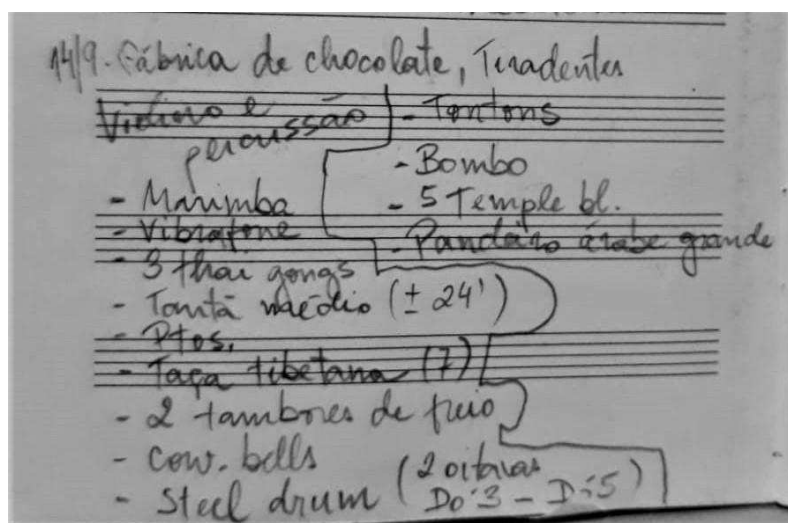 14/9. Fábrica de chocolate, Tiradentes
Violino e
percussão
- Marimba
- Vibrafone
- 3 thai gongs
- Tantã médio (± 24')
- Ptos.
- Taça tibetana (7)
- 2 tambores de freio
- cow. bells
- Steel drum (2 oitavas
Dó 3 - Dó 5)
- Tontons
- Bombo
- 5 Temple bl.
- Pandeiro árabe grande